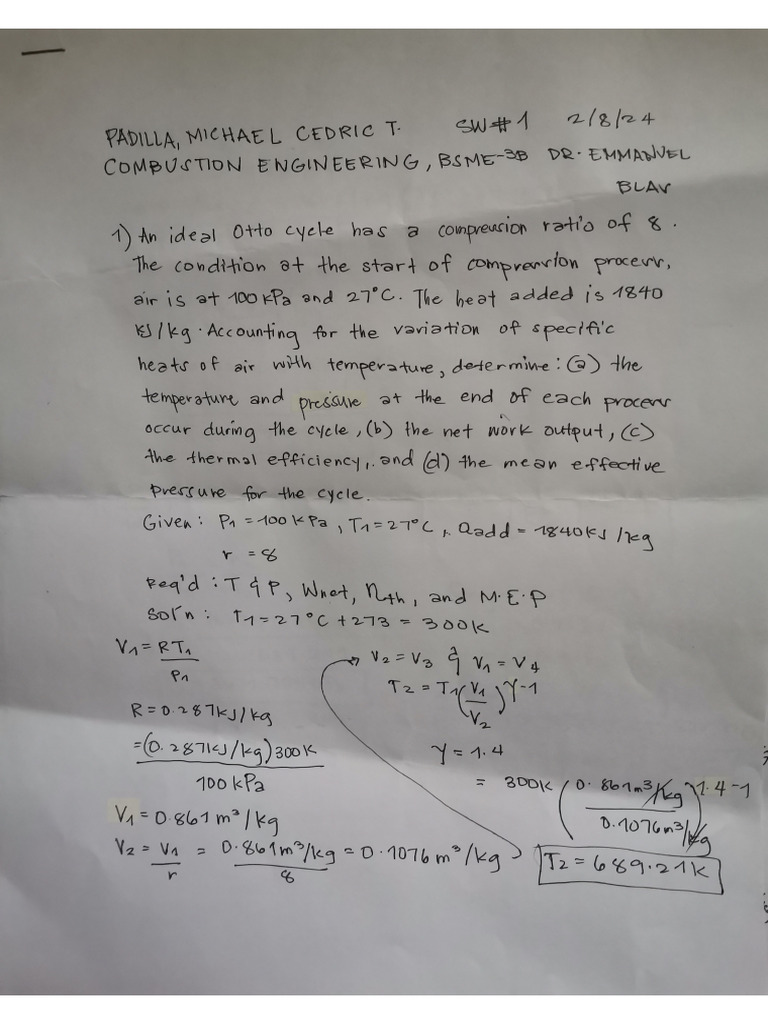 PADILLA, MICHAEL CEDRIC T. SW#1 2/8/24
COMBUSTION ENGINEERING, BSME-3B DR. EMMANUEL
BLAV
1) An ideal Otto cycle has a compression ratio of 8.
The condition at the start of compression process,
air is at 100 kPa and 27°C. The heat added is 1840
KJ/kg. Accounting for the variation of specific
heats of air with temperature, determine: (a) the
temperature and pressure at the end of each process
occur during the cycle, (b) the net work output, (c)
the thermal efficiency, and (d) the mean effective
pressure for the cycle.
Given: P1 = 100 kPa, T1 = 27°C, Qadd = 1840 KJ/kg
r = 8
Req'd: T & P, Wnet, ηth, and M.E.P
Sol'n: T1 = 27°C + 273 = 300K
V1 = RT1
P1
R = 0.287 kJ/kg
= (0.287 kJ/kg) 300K
100 kPa
V1 = 0.861 m³/kg
V2 = V1 = 0.861 m³/kg = 0.1076 m³/kg
r 8
V2 = V3 & V1 = V4
T2 = T1 (V1) γ-1
V2
γ = 1.4
= 300K (0.861 m³/kg) 1.4-1
0.1076 m³/kg
T2 = 689.21K